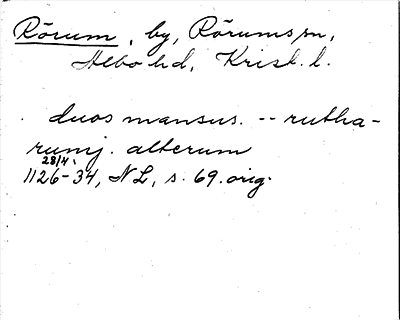 Rörum, by, Rörums sn,
Albo hd, Krist. l.
duos mansus. -- rutha-
rumj. alterum
28/4.
1126-34, NL, s. 69. orig.